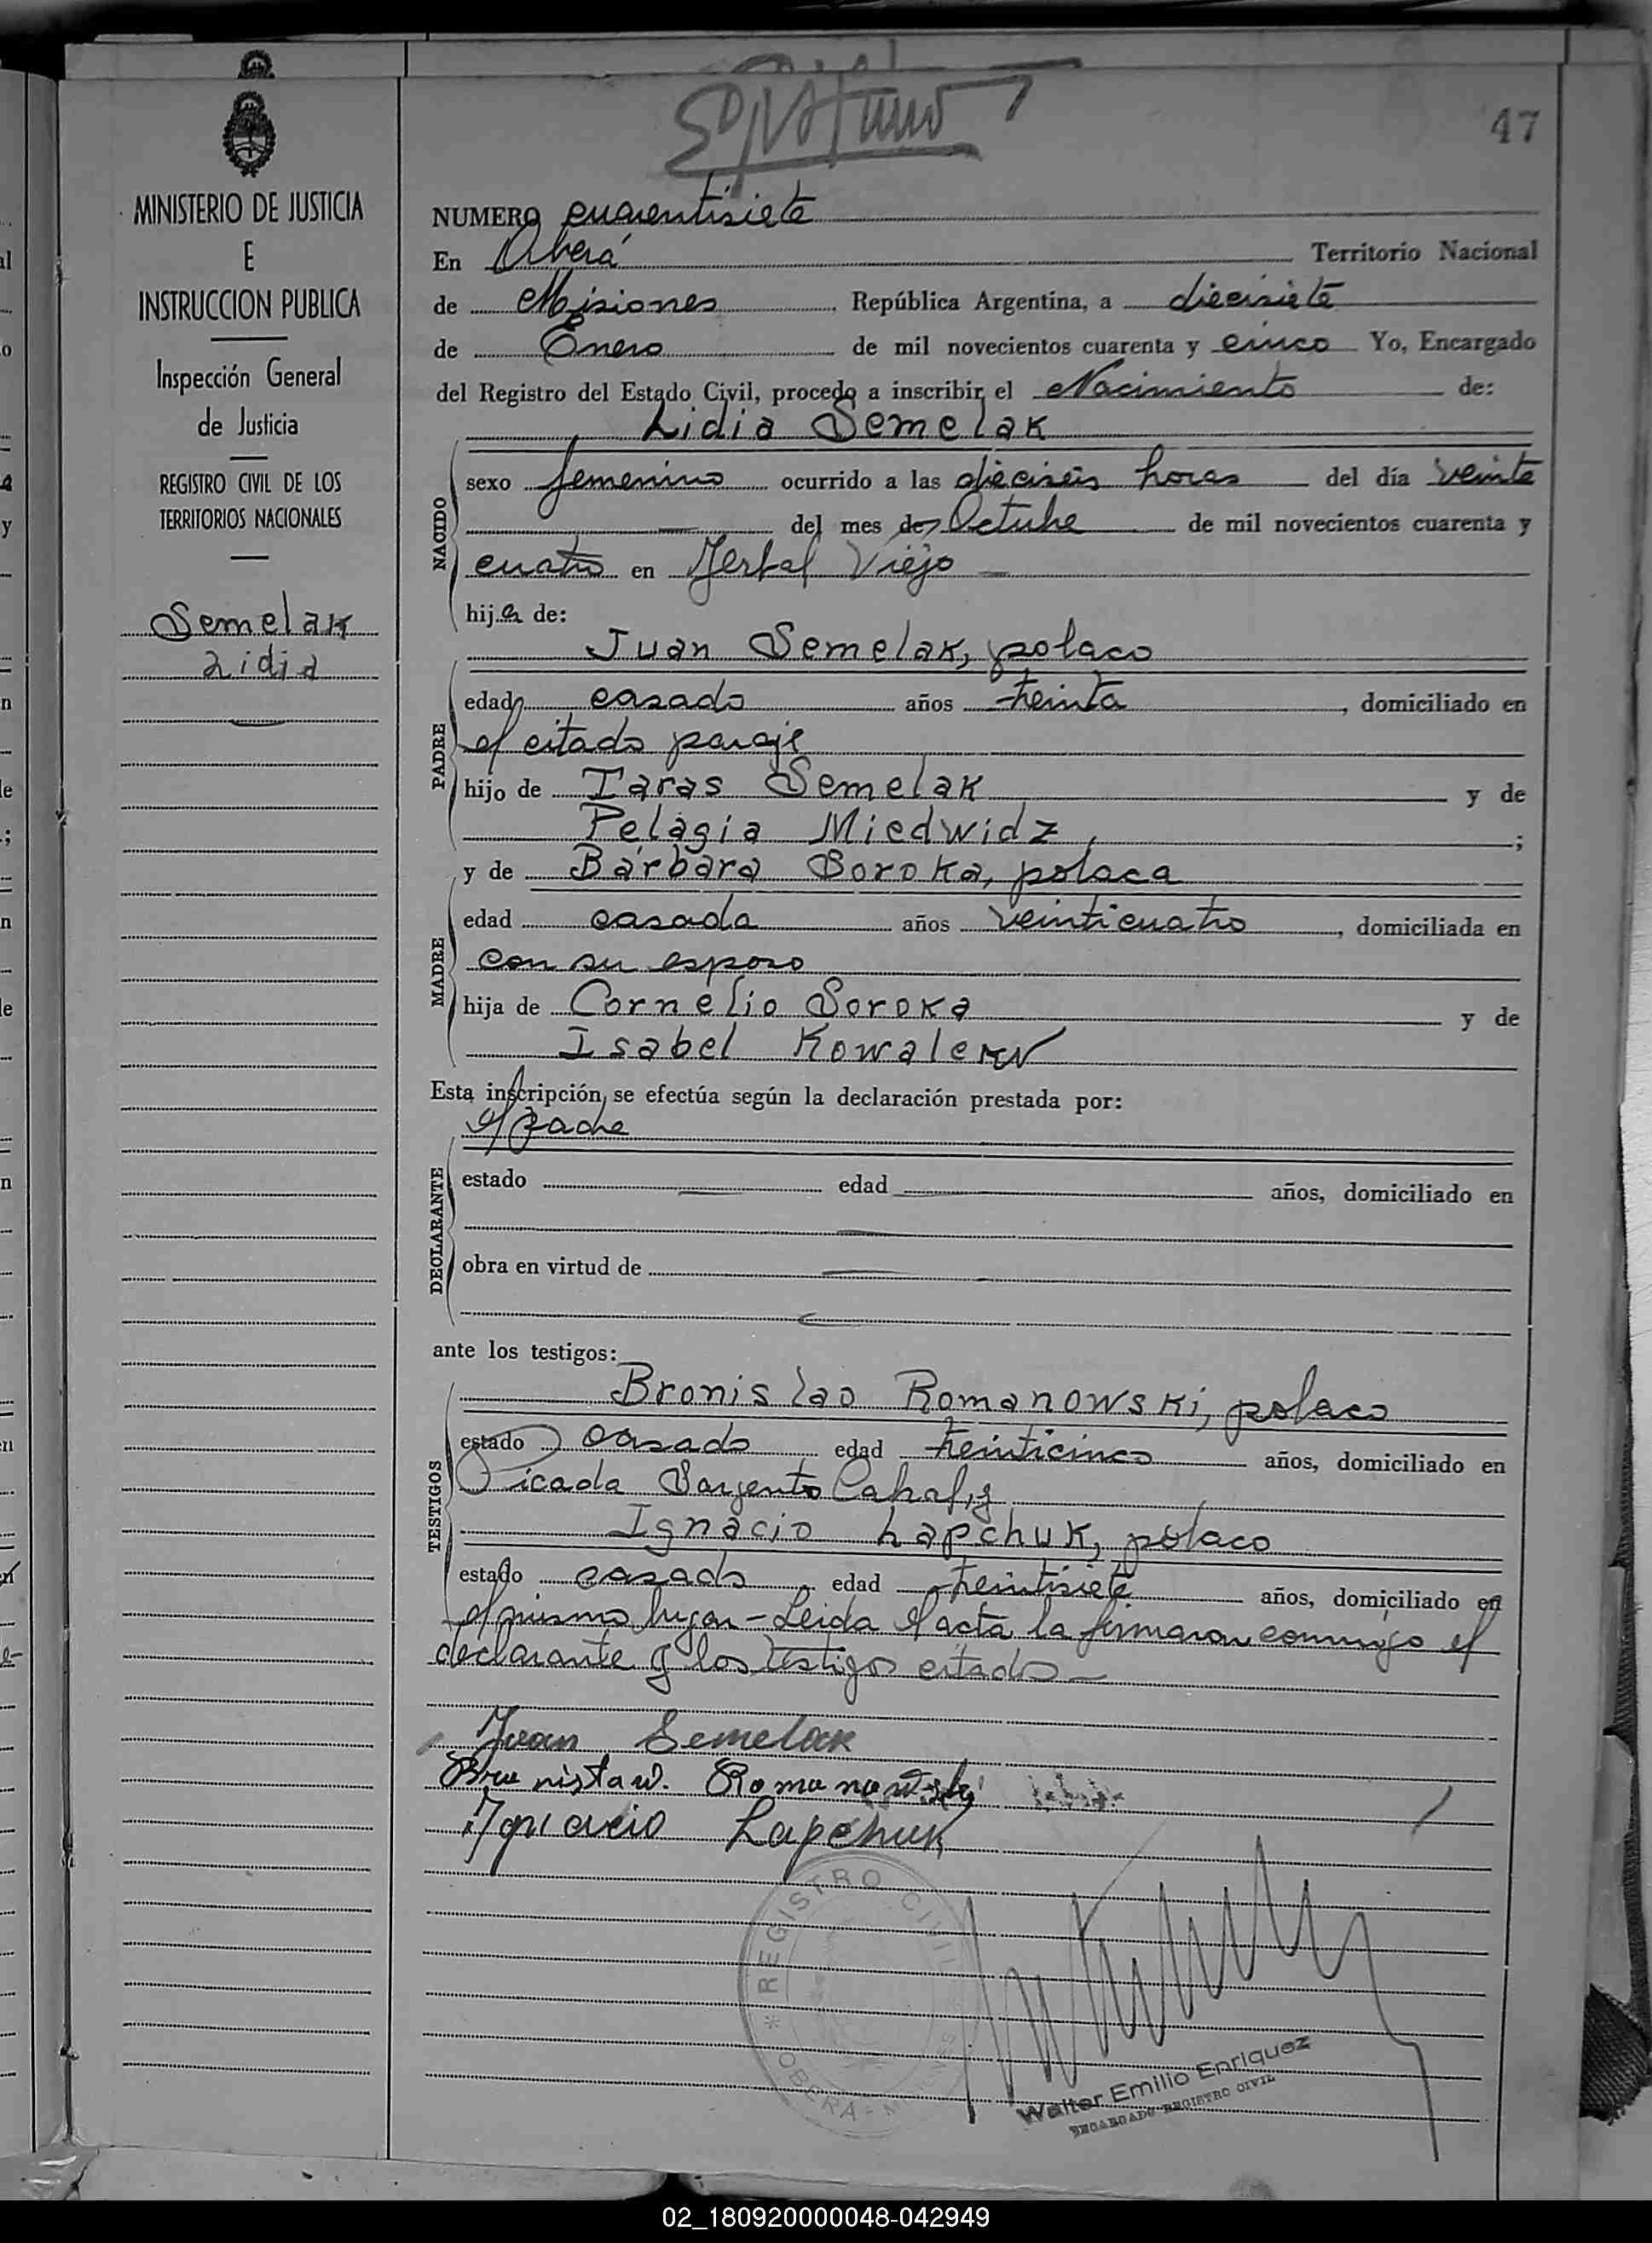 47
MINISTERIO DE JUSTICIA
E
INSTRUCCION PUBLICA
Inspección General
de Justicia
REGISTRO CIVIL DE LOS
TERRITORIOS NACIONALES
Semelak
Lidia
NUMERO cuarentisiete
En Oberá Territorio Nacional
de Misiones República Argentina, a diecisiete
de Enero de mil novecientos cuarenta y cinco Yo, Encargado
del Registro del Estado Civil, procedo a inscribir el Nacimiento de:
Lidia Semelak
NACIDO
sexo femenino ocurrido a las dieciseis horas del día veinte
del mes de Octubre de mil novecientos cuarenta y
cuatro en Yerbal Viejo
hija de:
Juan Semelak, polaco
PADRE
edad casado años treinta, domiciliado en
el citado paraje
hijo de Taras Semelak y de
Pelagia Miedwidz ;
y de Bárbara Soroka, polaca
MADRE
edad casada años veinticuatro, domiciliada en
con su esposo
hija de Cornelio Soroka y de
Isabel
Esta inscripción se efectúa según la declaración prestada por:
el padre
DECLARANTE
estado edad años, domiciliado en
obra en virtud de
ante los testigos:
TESTIGOS
Bronislao Romanowski, polaco
estado casado edad treinticinco años, domiciliado en
Picada Sargento Cabral, y
Ignacio Lapchuk, polaco
estado casado edad treintisiete años, domiciliado en
el mismo lugar - Leida el acta la firmaron conmigo el
declarante y los testigos citados -
Juan Semelak
Bronistaw. Romanowski
Ignacio Lapchuk
REGISTRO CIVIL
OBERA - MISIONES
Walter Emilio Enriquez
ENCARGADO REGISTRO CIVIL
02_180920000048-042949